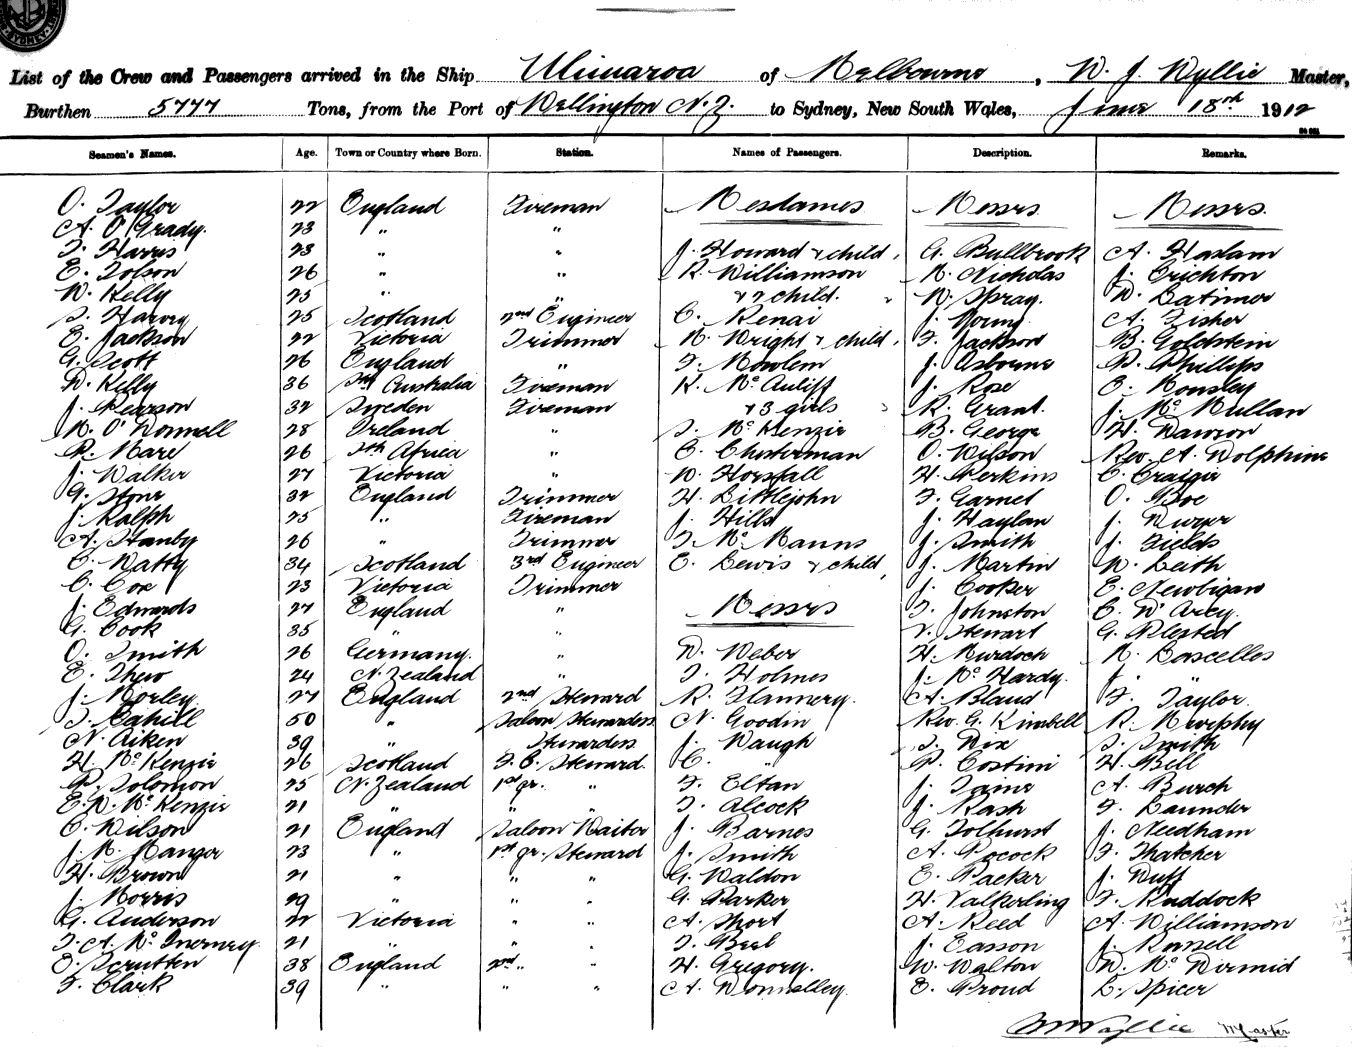 List of the Crew and Passengers arrived in the Ship Ulimaroa of Melbourne, W. J. Wyllie Master,
Burthen 5777 Tons, from the Port of Wellington N.Z. to Sydney, New South Wales, June 18th 1912
Seamen's Names. Age. Town or Country where Born. Station. Names of Passengers. Description. Remarks.
O. Taylor 22 England Fireman Mesdames Messrs Messrs.
A. O'Grady. 23 " "
T. Harris 23 " " J. Howard & child, G. Bullbrook A. Haslam
E. Tolson 26 " " R. Williamson N. Nicholas J. Crichton
W. Kelly 25 " " & 2 child. " W. Spray. W. Latimer
S. Harvey 25 Scotland 2nd Engineer C. Renai J. Young A. Fisher
E. Jackson 22 Victoria Trimmer N. Wright & child, F. Jackson B. Goldstein
G. Scott 26 England " F. Mowlem J. Osbourne P. Phillips
W. Kelly 36 Sth Australia Fireman K. McAuliff J. Rose E. Mousley
J. Pearson 32 Sweden Fireman & 3 girls R. Grant. J. McMullan
M. O'Donnell 28 Ireland " S. McKenzie B. George H. Dawson
P. Mare 26 Sth Africa " E. Chesterman O. Wilson Rev. A. Dolphine
J. Walker 27 Victoria " W. Horsfall H. Perkins C. Craigie
G. Stone 32 England Trimmer H. Littlejohn F. Garnet O. Boe
J. Ralph 25 " Fireman J. Hills J. Haylan J. Dwyer
A. Hanby 26 " Trimmer T. McManns J. Smith J. Fields
C. Watty 34 Scotland 3rd Engineer E. Lewis & child, J. Martin W. Leith
C. Cox 23 Victoria Trimmer J. Cooker E. Newbigan
J. Edwards 27 England " Messrs T. Johnston C. D'Arcy.
G. Cook 35 " " V. Stewart G. Plested
O. Smith 26 Germany. " W. Weber H. Murdoch M. Bascellos
E. Thew 24 N. Zealand " T. Holmes J. McHardy. J. "
J. Morley 27 England 2nd Steward R. Flannery. A. Bland F. Taylor
T. Cahill 50 " Saloon Stewardess N. Goodin Rev. G. Kimbell R. Murphy
N. Aiken 39 " Stewardess J. Waugh S. Dix S. Smith
H. McKenzie 26 Scotland F.C. Steward. C. " P. Costini H. Bell
P. Solomon 25 N. Zealand 1st gr. " F. Eltan J. Taine A. Burch
E. W. McKenzie 21 " " " T. Alcock J. Rash F. Launder
C. Wilson 21 England Saloon Waiter J. Barnes G. Tolhurst J. Needham
J. M. Manger 23 " 1st gr. Steward J. Smith A. Pocock F. Thatcher
H. Brown 21 " " " G. Waldon E. Packer J. Duff
J. Morris 29 " " " G. Parker H. Valkerling F. Ruddock
G. Anderson 22 Victoria " " A. Short A. Reed A. Williamson
T. A. McInerney. 21 " " " T. Beel J. Easson J. Russell
E. Scrutten 38 England 2nd " " H. Gregory. W. Walton D. McDirmid
F. Clark 39 " " " A. Donnelley. E. Proud L. Spicer
W J Wyllie Master